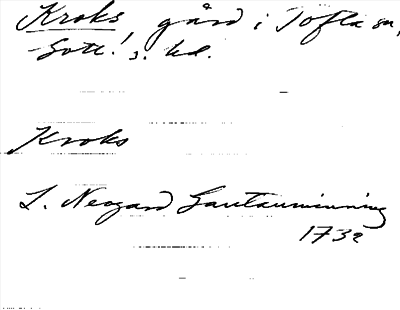 Kroks, gård i Tofta sn,
Gotl. s. hd.
Kroks
L. Neogard Gautauminning
1732